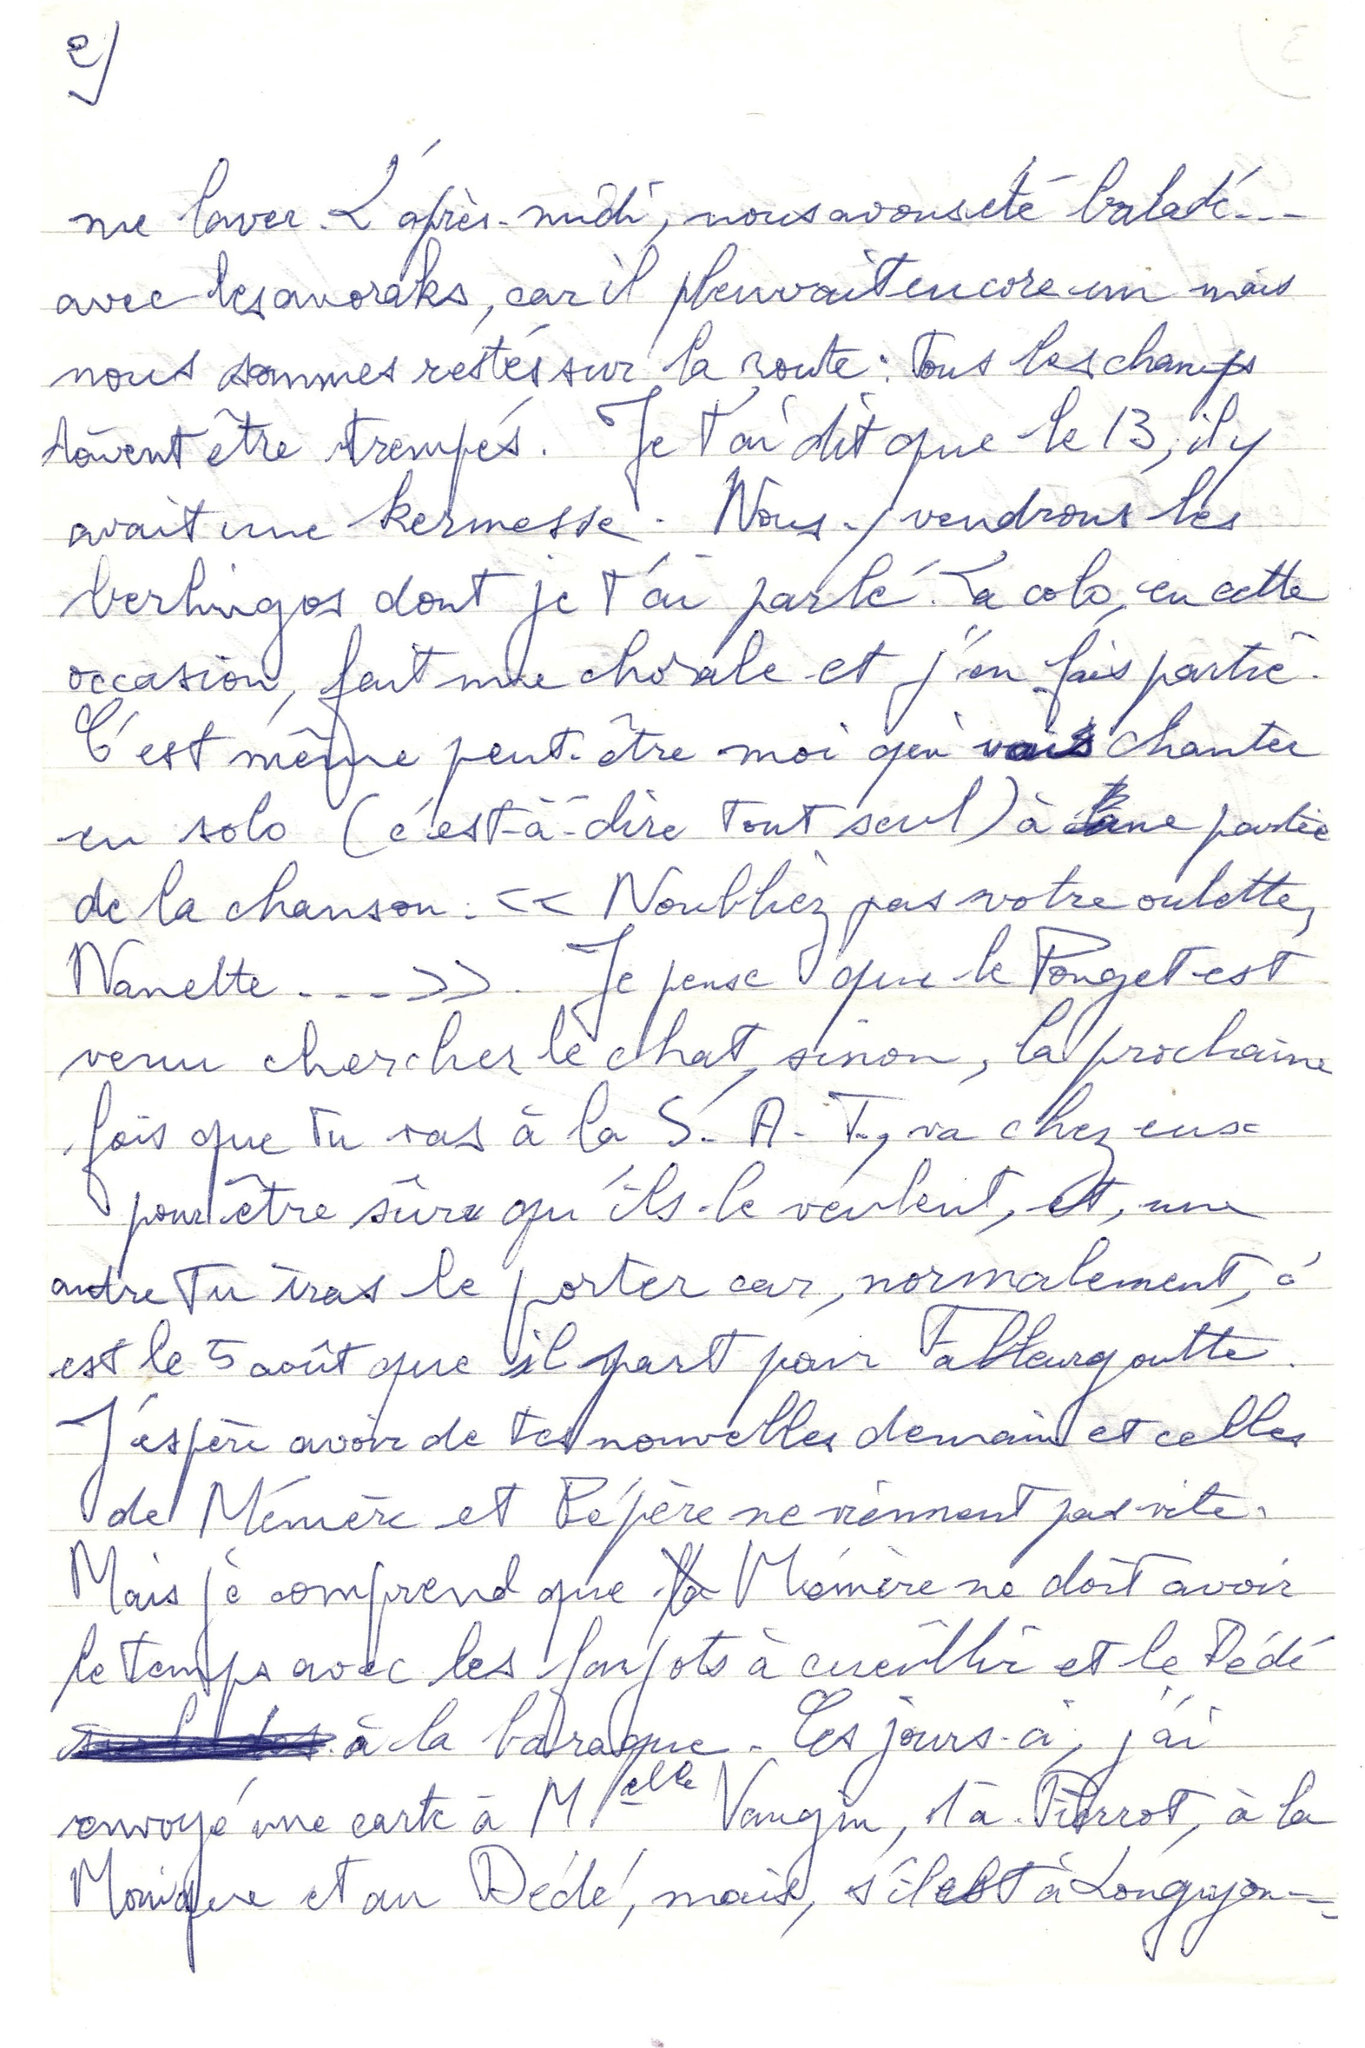 2)
me laver. L'après-midi, nous avons été baladé...
avec les anoraks, car il pleuvait encore un mais
nous sommes restés sur la route : tous les champs
doivent être trempés. Je t'ai dit que le 13, il y
avait une kermesse. Nous y vendrons les
berlingos dont je t'ai parlé. La colo, en cette
occasion, fait une chorale et j'en fais partie.
C'est même peut-être moi qui vais chanter
en solo (c'est-à-dire tout seul) à une partie
de la chanson : << Noubliez pas votre oulette,
Nanette ... >>. Je pense que le Ponget est
venu chercher le chat, sinon, la prochaine
fois que tu vas à la S. A. T., va chez eux
pour être sûre qu'ils le veulent, et, une
autre tu iras le porter car, normalement, c'
est le 5 août que il part pour
J'espère avoir de tes nouvelles demain et celles
de Mémère et Pépère ne viennent pas vite.
Mais je comprend que la Mémère ne doit avoir
le temps avec les fayots à cueillir et le Dédé
à la baraque. Ces jours-ci, j'ai
envoyé une carte à Melle Vaugin, 1 à Pierrot, à la
Monique et au Dédé, mais, s'il est à Longuyon...